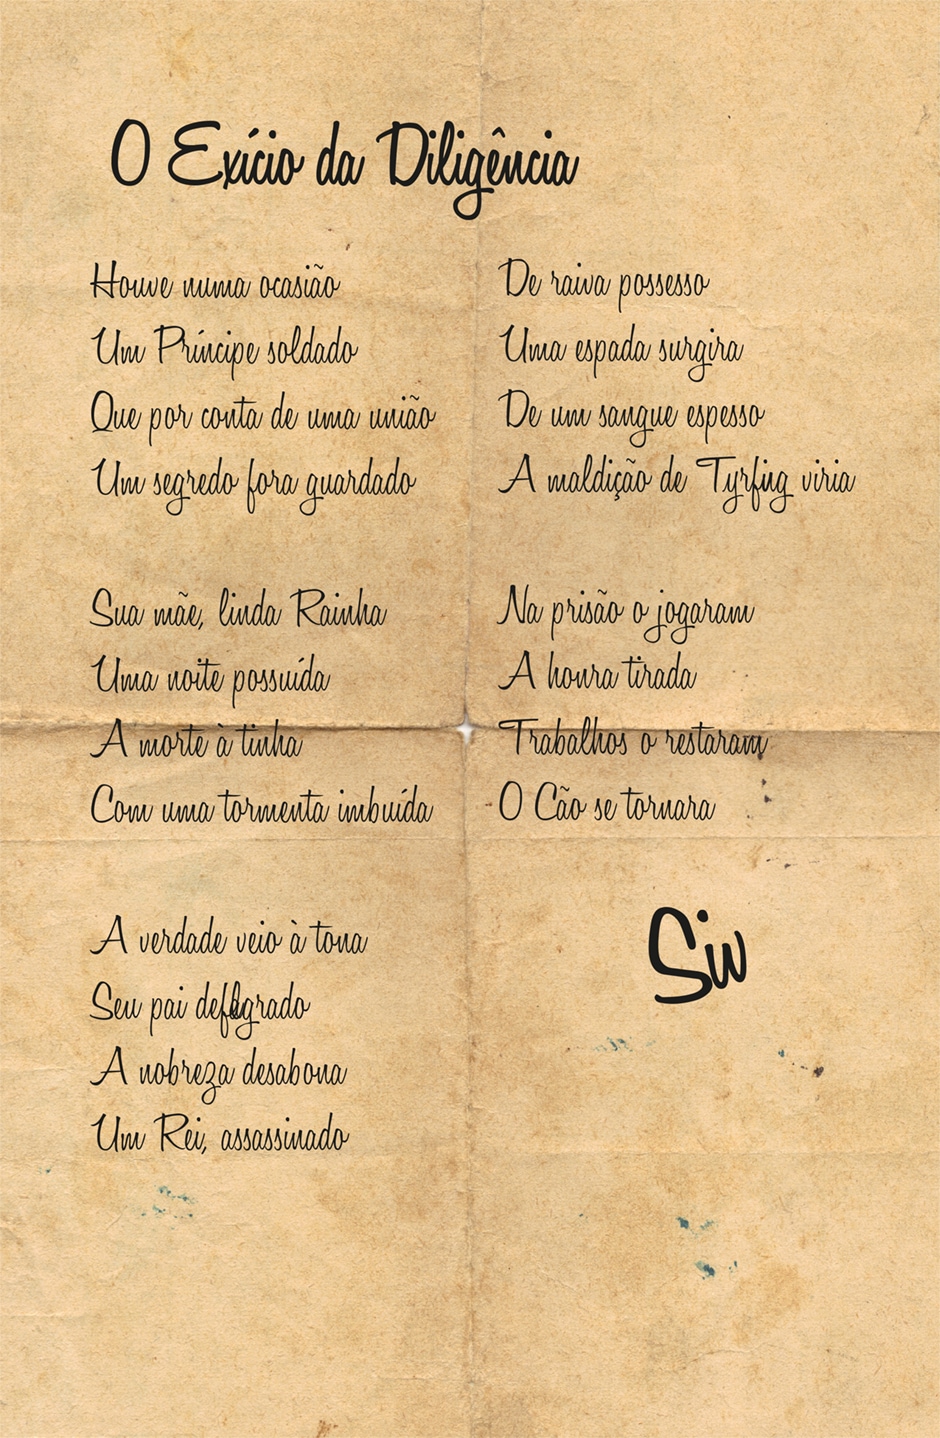 O Exício da Diligência
Houve numa ocasião
Um Príncipe soldado
Que por conta de uma união
Um segredo fora guardado
Sua mãe, linda Rainha
Uma noite possuída
A morte à tinha
Com uma tormenta imbuída
A verdade veio à tona
Seu pai deflagrado
A nobreza desabona
Um Rei, assassinado
De raiva possesso
Uma espada surgira
De um sangue espesso
A maldição de Tyrfing viria
Na prisão o jogaram
A honra tirada
Trabalhos o restaram
O Cão se tornara
Siv